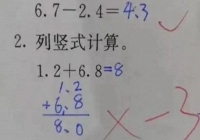 6.7-2.4=4.3
2. 列竖式计算。
1.2+6.8=8
1.2
+6.8
8.0
×-3